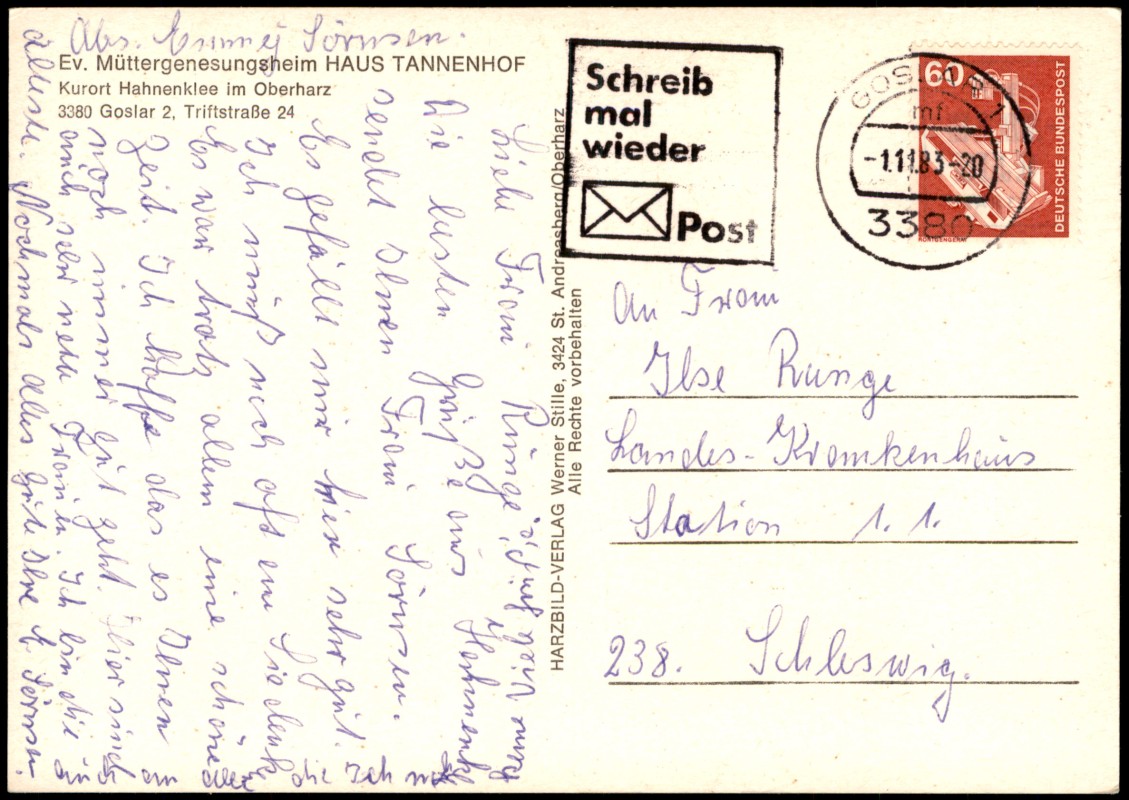 Abs. Emmy Sörnsen.
Ev. Müttergenesungsheim HAUS TANNENHOF
Kurort Hahnenklee im Oberharz
3380 Goslar 2, Triftstraße 24
Liebe Frau Runge,
Die besten Grüße aus Hahnenkl
sendet Ihnen Frau Sörnsen.
Es gefällt mir hier sehr gut.
Ich muß noch oft an Sie denk
Es war trotz allem eine schöne
Zeit. Ich hoffe das es Ihnen
noch immer gut geht. Hier sind
auch sehr nette Frauen. Ich bin die
älteste. Nochmals alles Gute Ihre E Sörnsen.
HARZBILD-VERLAG Werner Stille, 3424 St. Andreasberg/Oberharz
Alle Rechte vorbehalten
Schreib
mal
wieder
Post
GOSLAR 1
mf
-1.11.83-20
3380
60
DEUTSCHE BUNDESPOST
RÖNTGENGERÄT
An Frau
Ilse Runge
Landes-Krankenhaus
Station 1.1.
238. Schleswig.